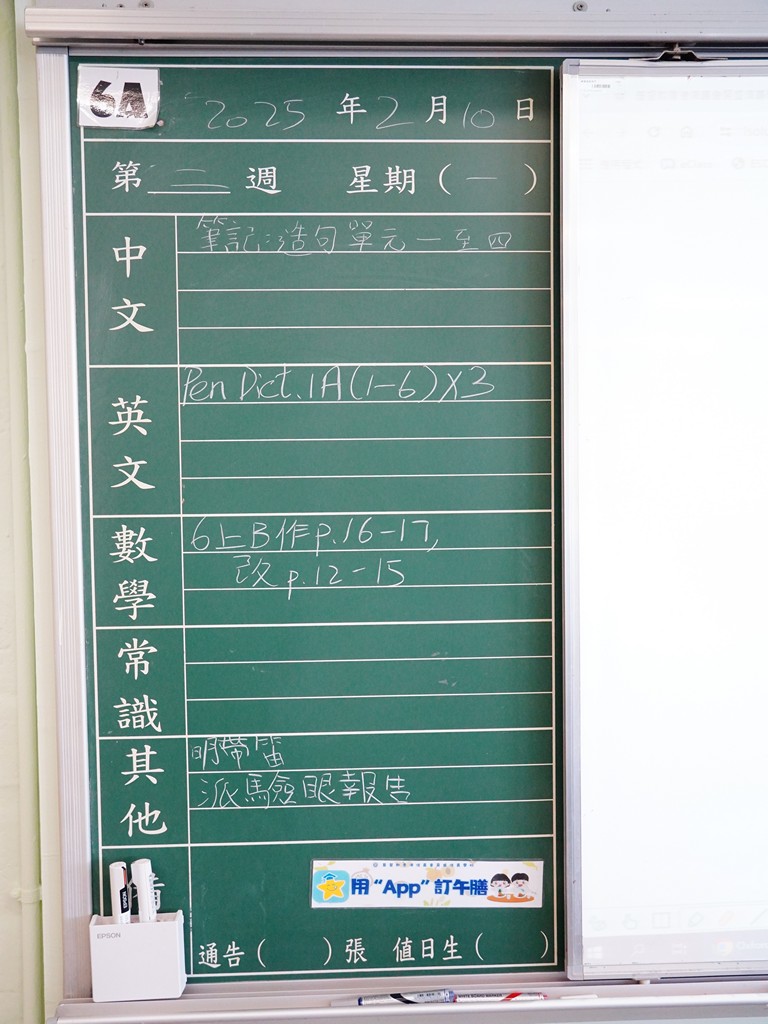 6A
2025 年 2 月 10 日
第 二 週 星期 ( 一 )
中文
筆記:造句單元一至四
英文
Pen Dict. 1A(1-6)X3
數學
6上B作p.16-17,
改p.12-15
常識
其他
明帶笛
派驗眼報告
用 “App” 訂午膳
EPSON
通告 ( ) 張 值日生 ( )